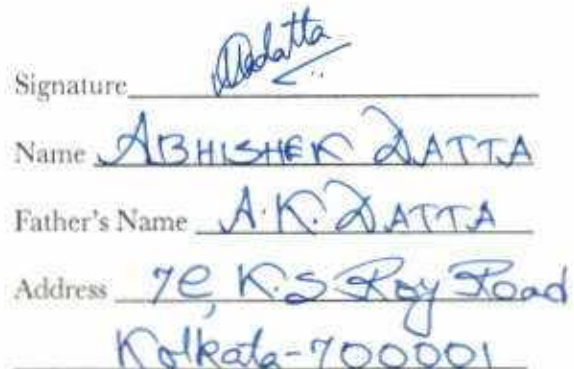 Signature Adatta
Name ABHISHEK DATTA
Father's Name A.K. DATTA
Address 7C, K.S Roy Road
Kolkata-700001